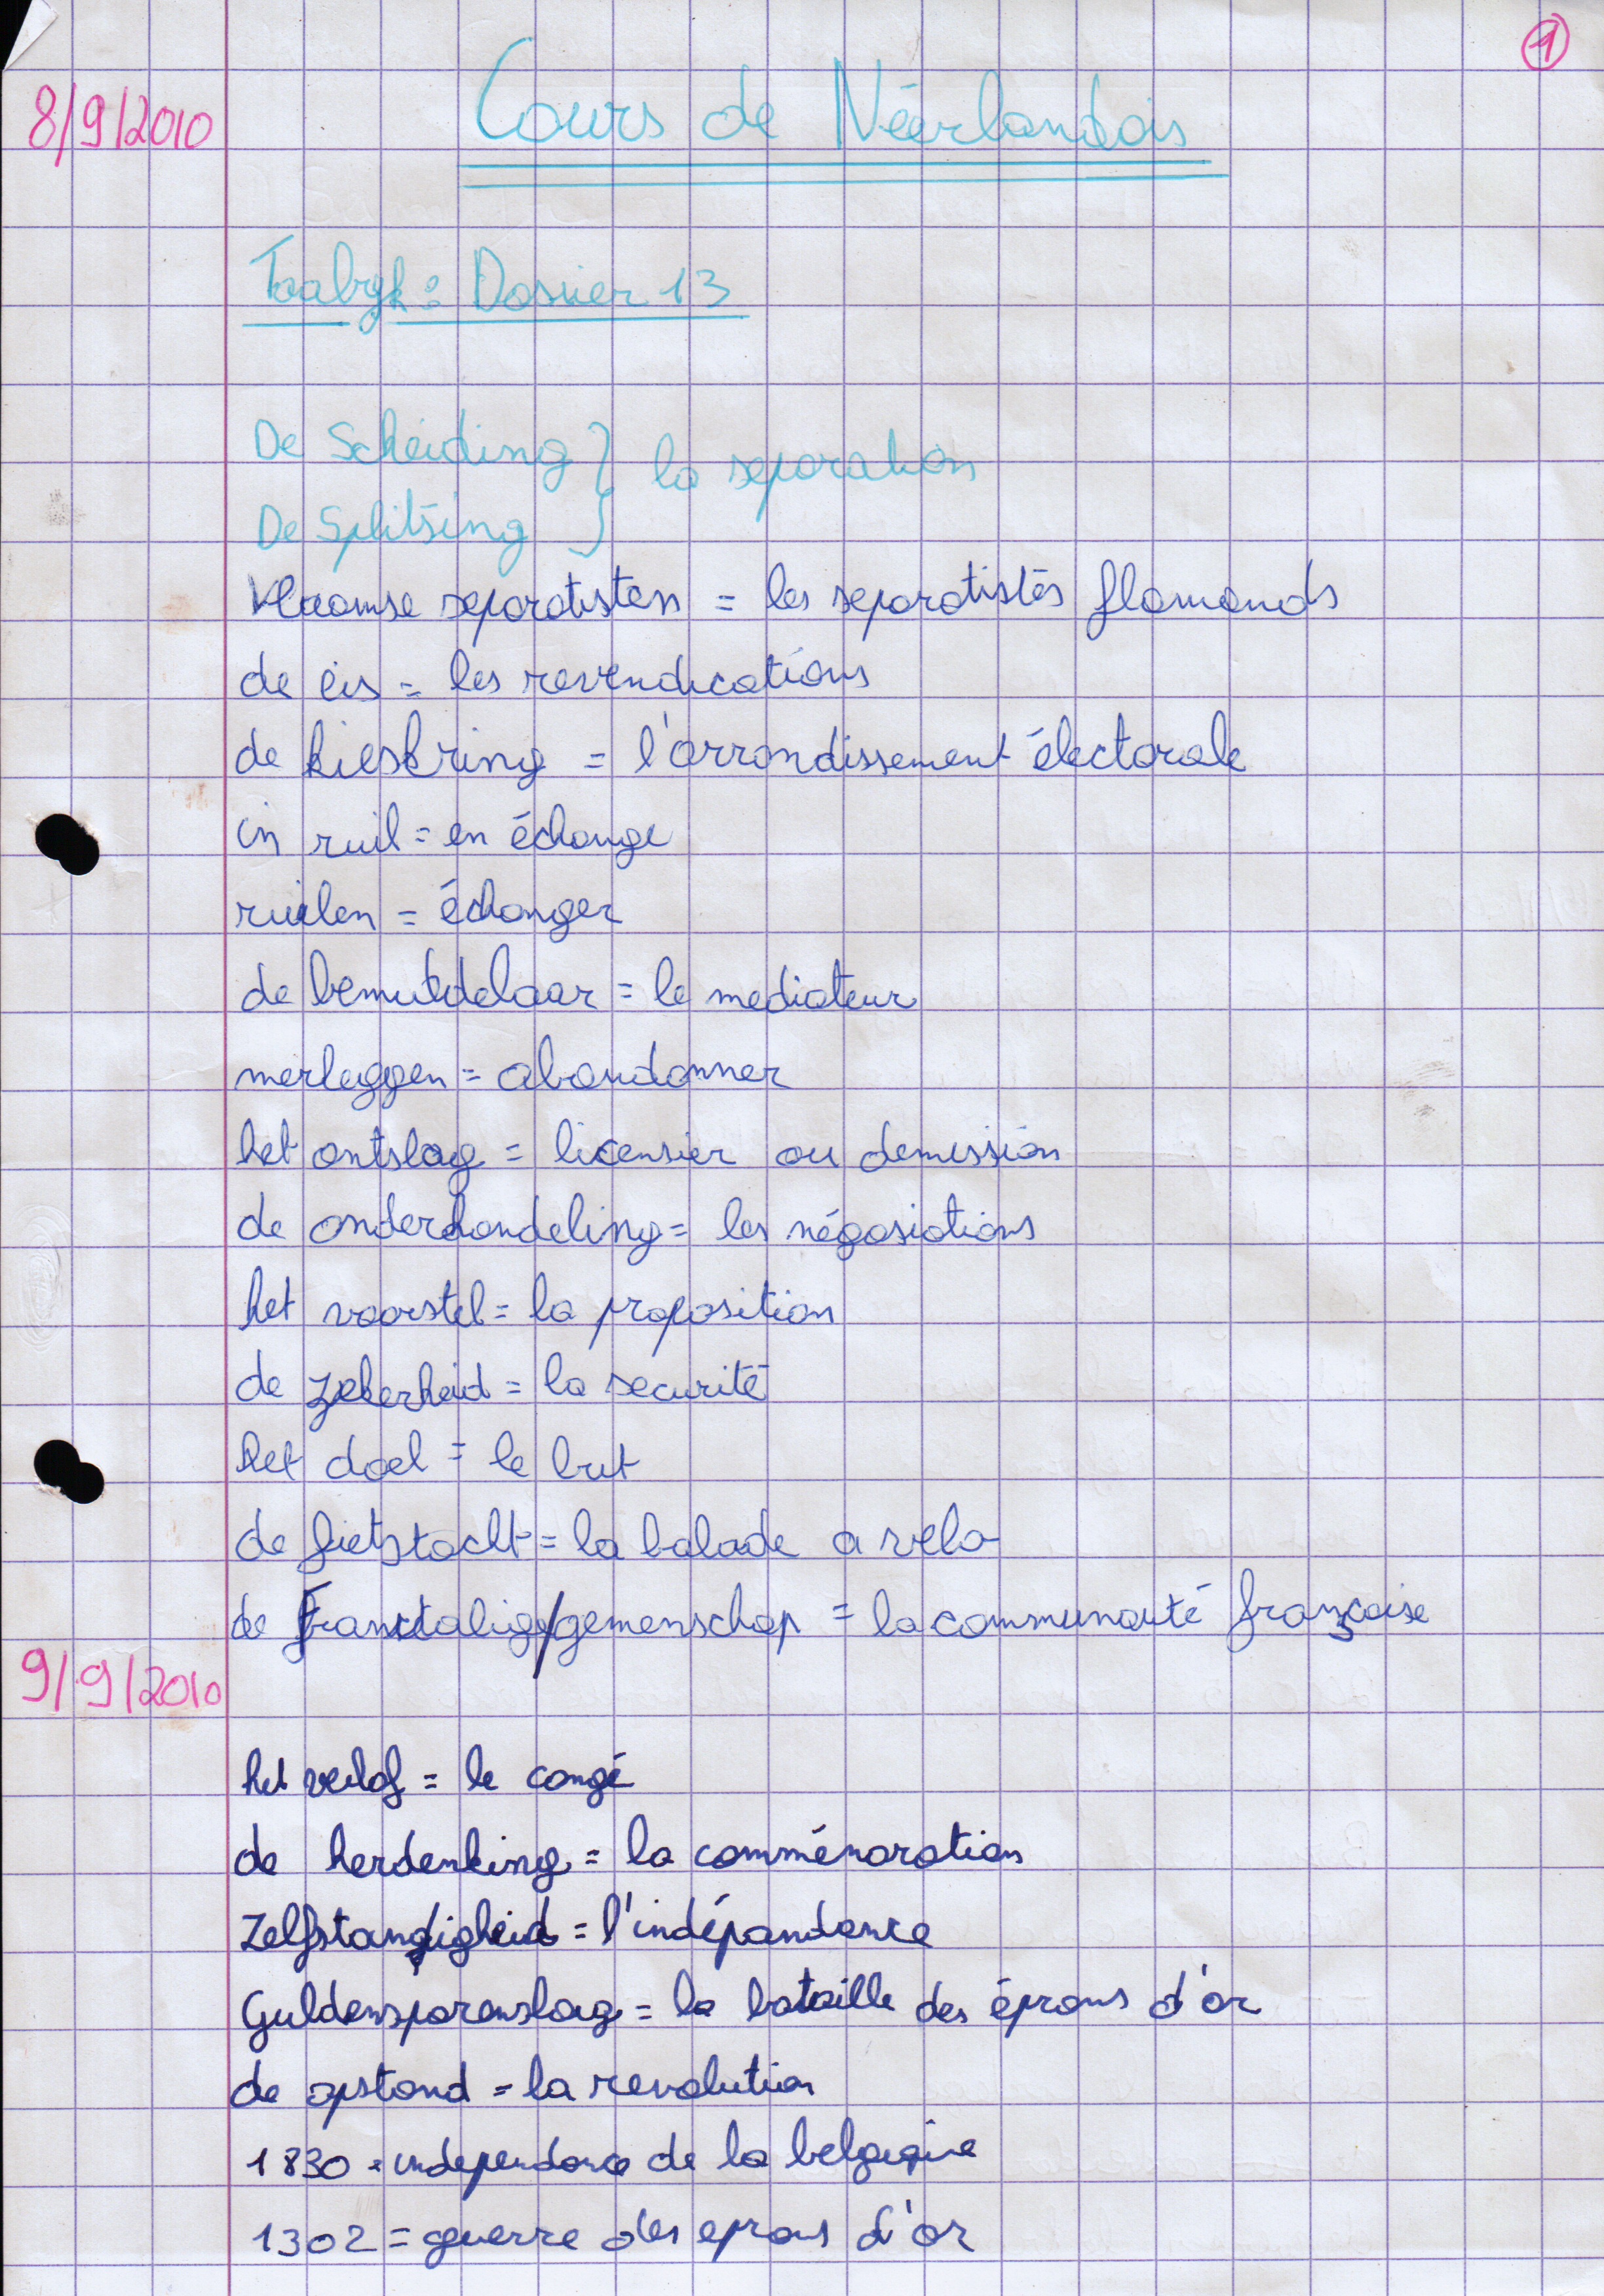 1
8/9/2010
Cours de Néerlandais
Taalrijk : Dossier 13
De Scheiding } la separation
De Splitsing
Vlaamse separatisten = les separatistes flamands
de eis = les revendications
de kieskring = l'arrondissement électorale
in ruil = en échange
ruilen = échanger
de bemiddelaar = le mediateur
neerleggen = abandonner
het ontslag = licensier ou demission
de onderhandeling = les négosiations
het voorstel = la proposition
de zekerheid = la securité
het doel = le but
de fietstocht = la balade a velo
de Franstalige gemenschap = la communauté française
9/9/2010
het verlof = le congé
de herdenking = la comménoration
Zelfstandigheid = l'indépandance
Guldensporenslag = la bataille des éprons d'or
de opstand = la revolution
1830 = independance de la belgique
1302 = guerre des eprons d'or